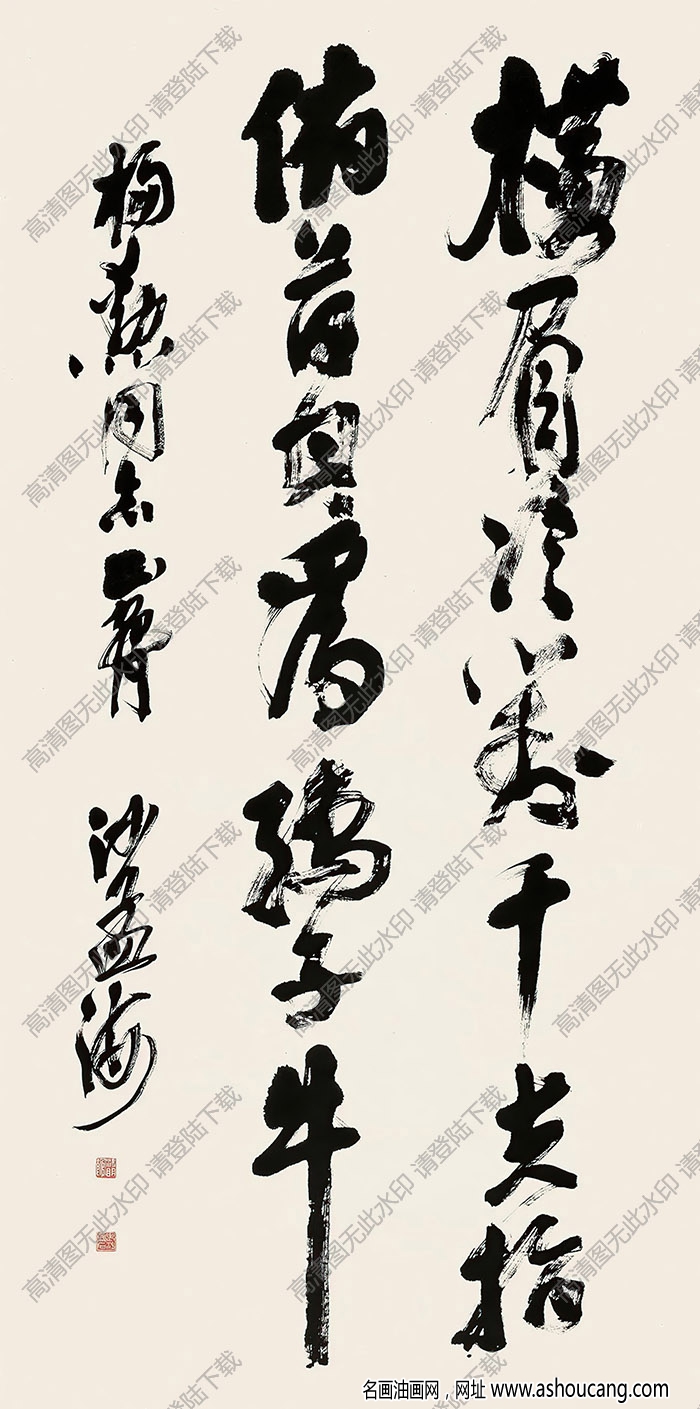 橫眉冷對千夫指
俯首甘為孺子牛
同志正
沙孟海
高清图无此水印 请登陆下载
名画油画网，网址 www.ashoucang.com